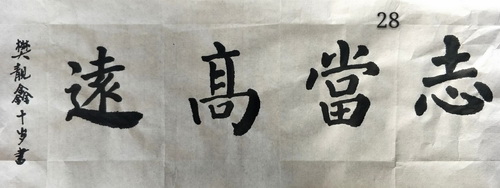 志當高遠
樊靚鑫十岁書
28